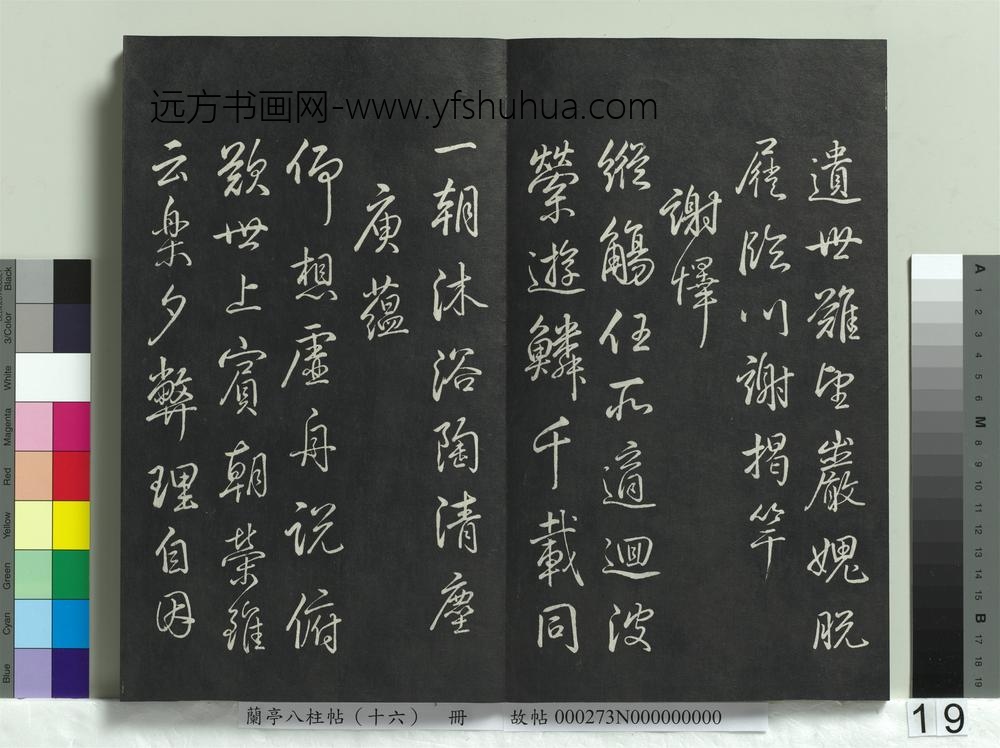 远方书画网-www.yfshuhua.com
遺世難望巖媿脫
屣臨川謝揭竿
謝懌
縱觴任所適迴波
縈遊鱗千載同
一朝沐浴陶清塵
庾蘊
仰想虛舟說俯
歎世上賓朝榮雖
云樂夕弊理自因
蘭亭八柱帖（十六） 冊 故帖 000273N000000000
19
Black
3/Color
White
Magenta
Red
Yellow
Green
Cyan
Blue
A
1
2
3
4
5
6
M
8
9
10
11
12
13
14
15
B
17
18
19